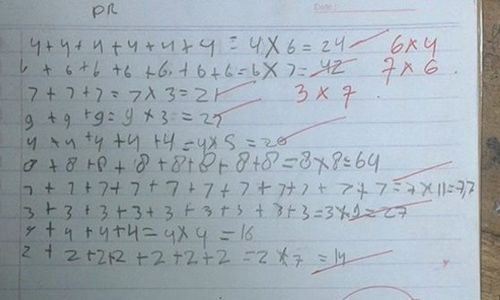 PR
Date:
4+4+4+4+4+4 = 4 x 6 = 24 6 x 4
6 + 6+6 +6 +6 +6+6=6x 7= 42 7 x 6
7 + 7 + 7 = 7 x 3 = 21 3 x 7
9 + 9 + 9 = 9 x 3 = 27
4 + 4 +4 +4+4 =4x5 =20
8 +8+8+ 8+8+8+8+8=8x8=64
7 + 7+ 7+ 7 + 7 + 7 + 7+ 7+7+ 7+7=7 x 11=77
3 + 3 + 3+ 3+ 3 + 3 + 3 + 3+3=3x9=27
4 + 4 +4+4=4x4 =16
2 + 2+2+2 +2 +2 +2 =2 x 7 = 14